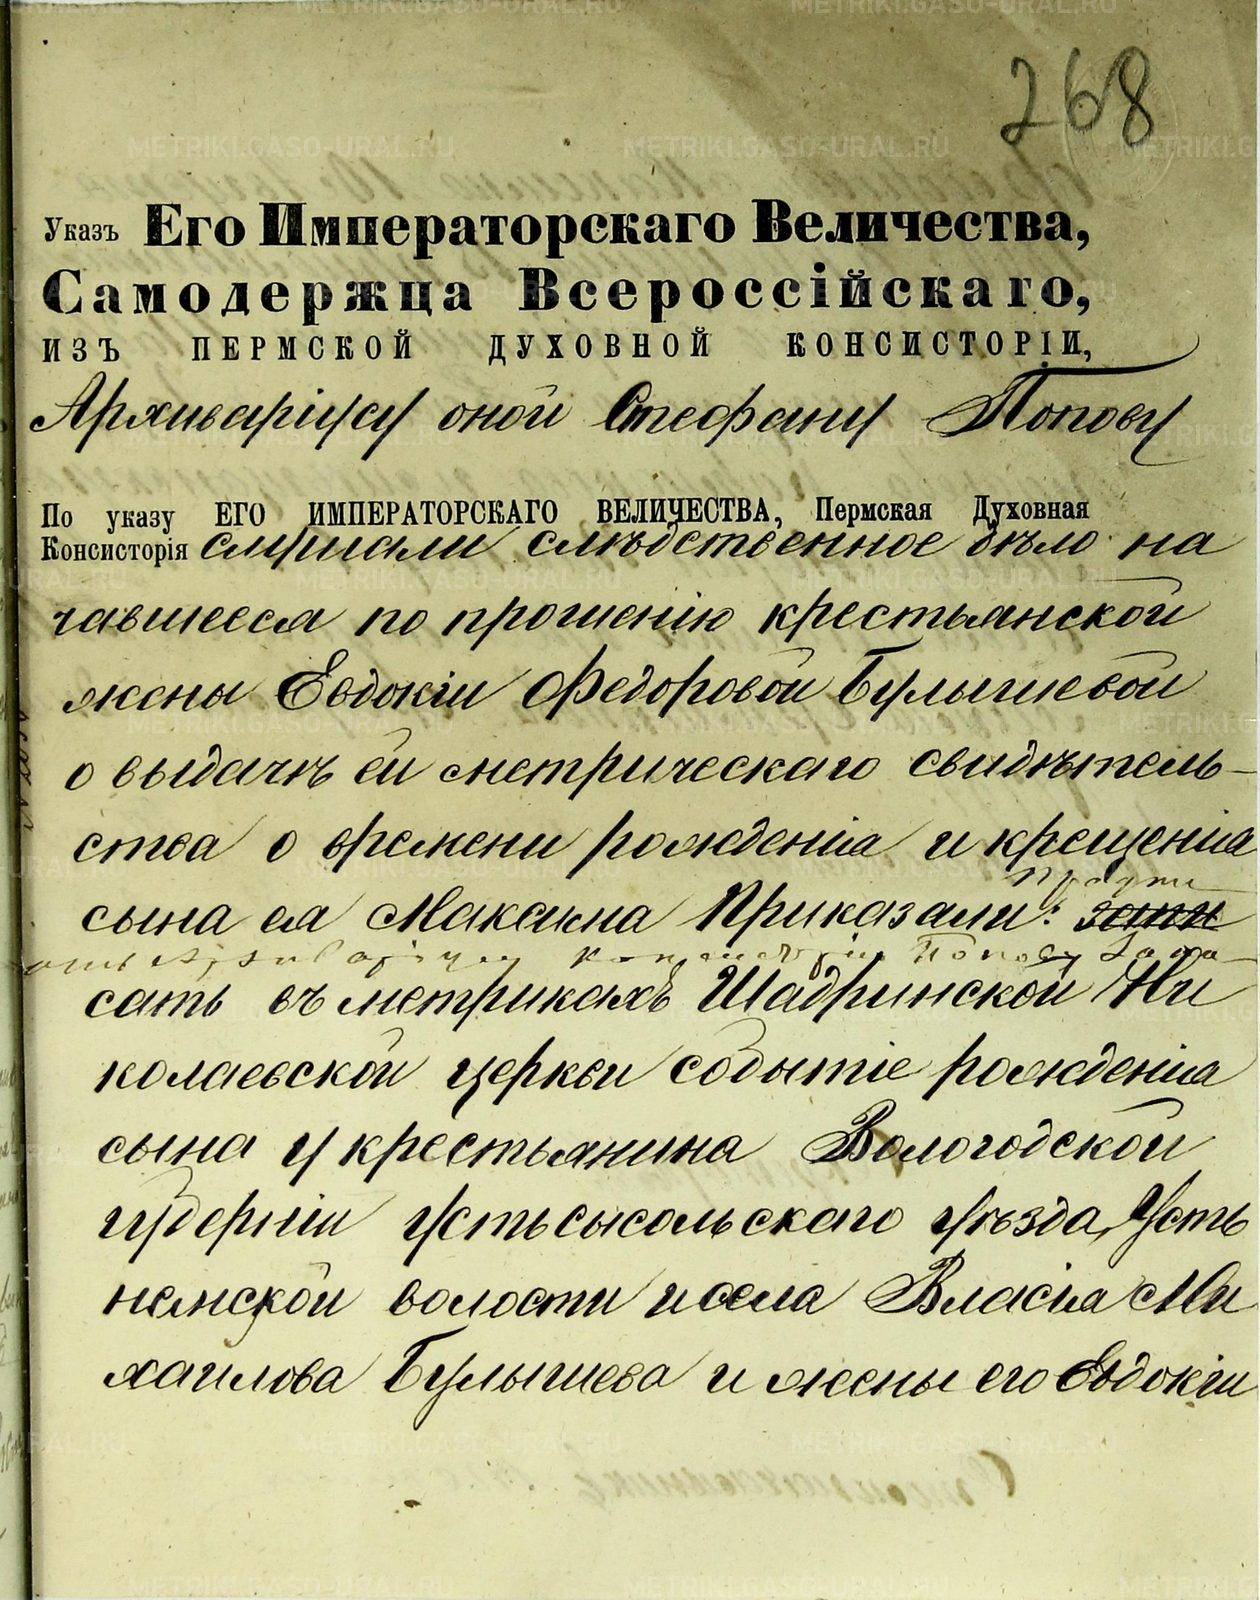 268
Указъ Его Императорскаго Величества,
Самодержца Всероссійскаго,
ИЗЪ ПЕРМСКОЙ ДУХОВНОЙ КОНСИСТОРІИ,
Архиваріусу оной Стефану Попову
По указу ЕГО ИМПЕРАТОРСКАГО ВЕЛИЧЕСТВА, Пермская Духовная
Консисторія слушали слѣдственное дѣло на
чавшееся по прошенію крестьянской
жены Евдокіи Федоровой Булышевой
о выдачѣ ей метрическаго свидѣтель-
ства о времени рожденія и крещенія
сына ея Максима Приказали: запи
Архиваріусу Консисторіи Попову запи
сать въ метрикахъ Шадринской Ни
колаевской церкви событіе рожденія
сына у крестьянина Вологодской
губерніи Устьсысольскаго уѣзда, Усть
немской волости и села Власія Ми
хаилова Булышева и жены его Евдокіи
METRIKI.GASO-URAL.RU